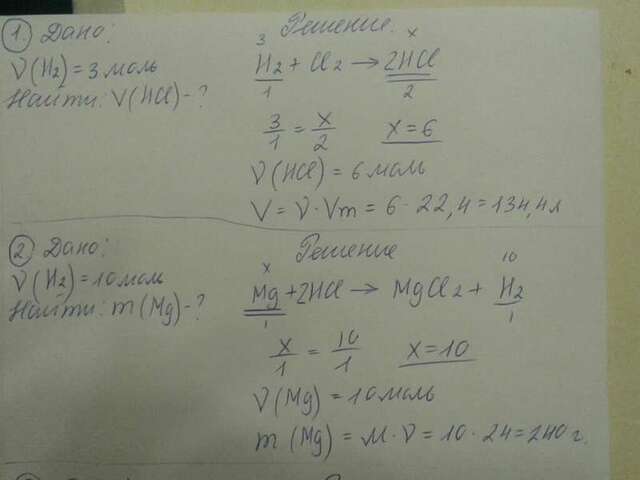 1. Дано:
ν(H₂) = 3 моль
Найти: V(HCl) - ?
Решение.
3 x
H₂ + Cl₂ → 2HCl
1 2
3/1 = x/2 x = 6
ν(HCl) = 6 моль
V = ν · Vm = 6 · 22,4 = 134,4 л
2 Дано:
ν(H₂) = 10 моль
Найти: m(Mg) - ?
Решение
x 10
Mg + 2HCl → MgCl₂ + H₂
1 1
x/1 = 10/1 x = 10
ν(Mg) = 10 моль
m(Mg) = M · ν = 10 · 24 = 240 г.